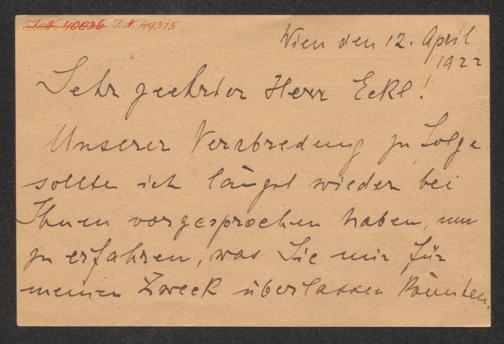 I.N. 40036 I.N. 49315
Wien den 12. April
1922
Sehr geehrter Herr Eckl!
Unserer Verabredung zu Folge
sollte ich längst wieder bei
Ihnen vorgesprochen haben, um
zu erfahren, was Sie mir für
meinen Zweck überlassen könnten.